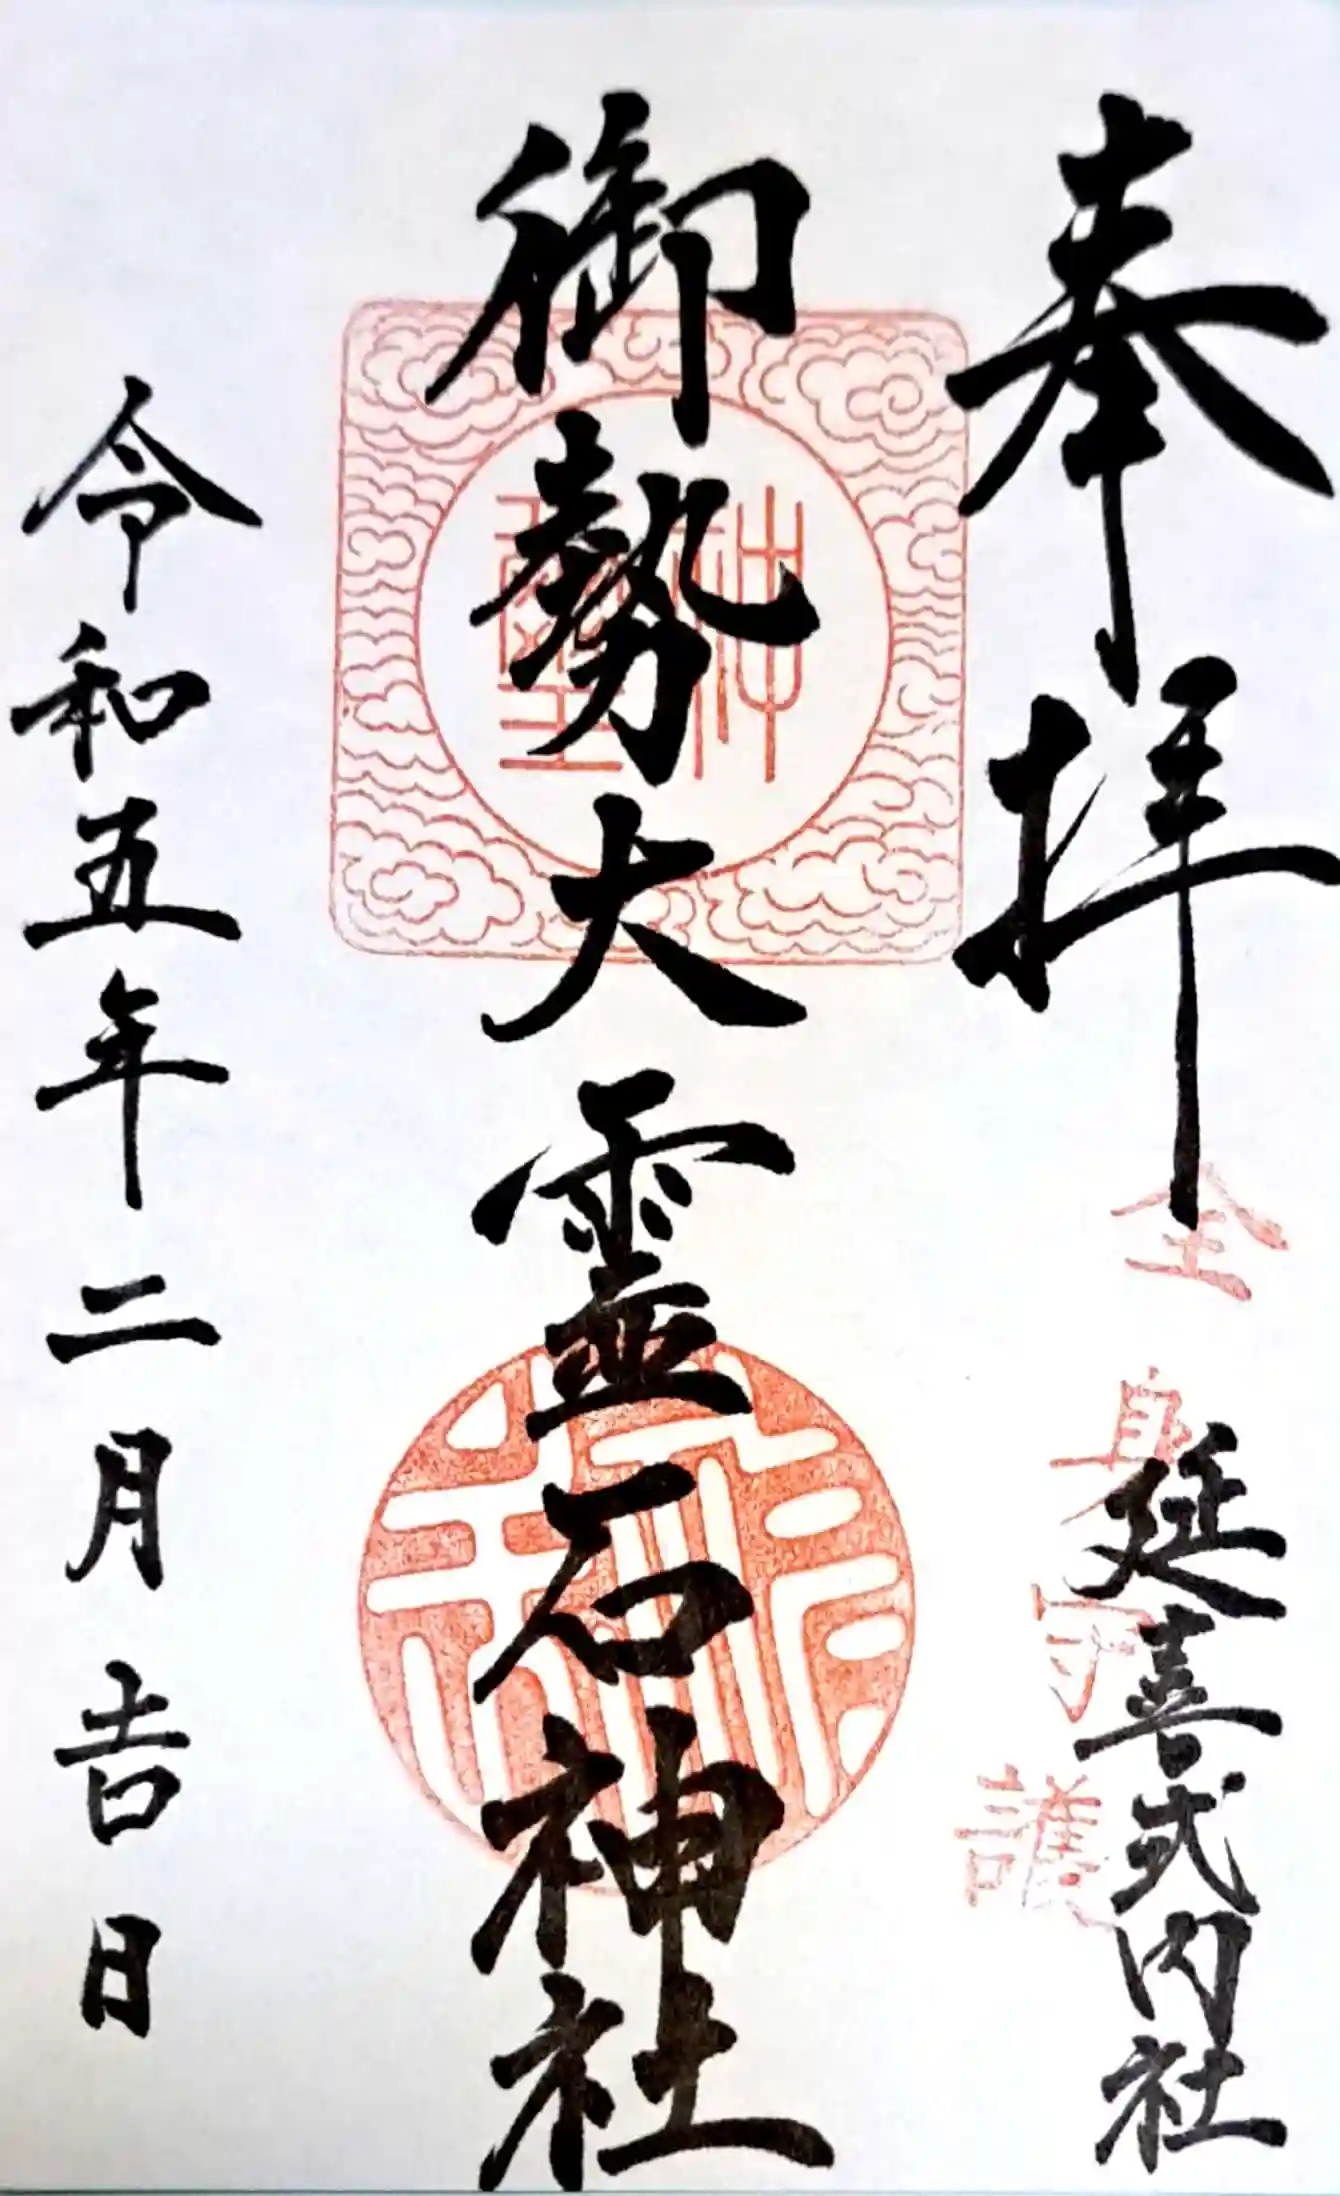 奉拝
全身守護
延喜式内社
御勢大霊石神社
神璽
令和五年二月吉日